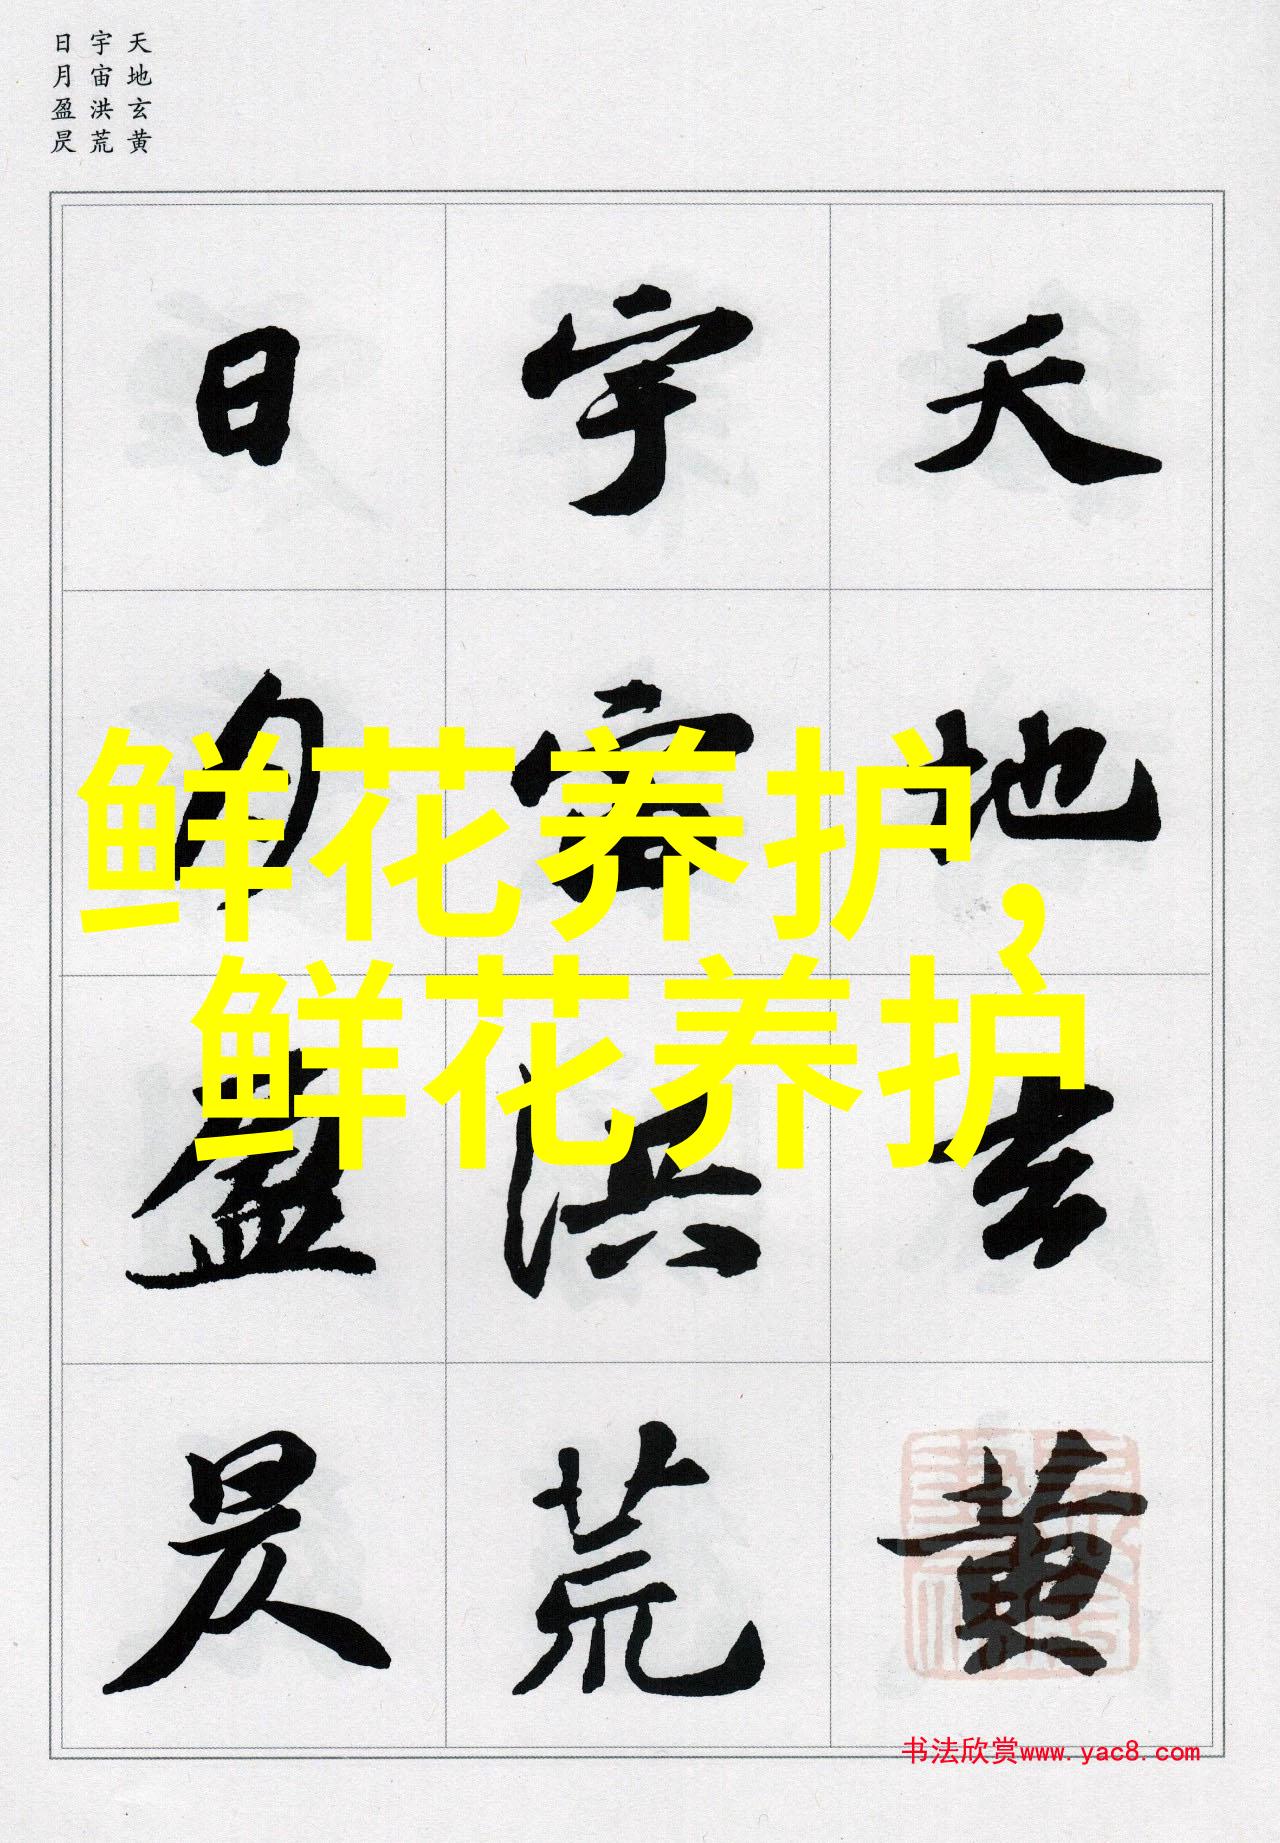 天地玄黄
宇宙洪荒
日月盈昃
天地玄黄
宇宙洪荒
日月盈昃
鲜花养护，
鲜花养护
书法欣赏www.yac8.com